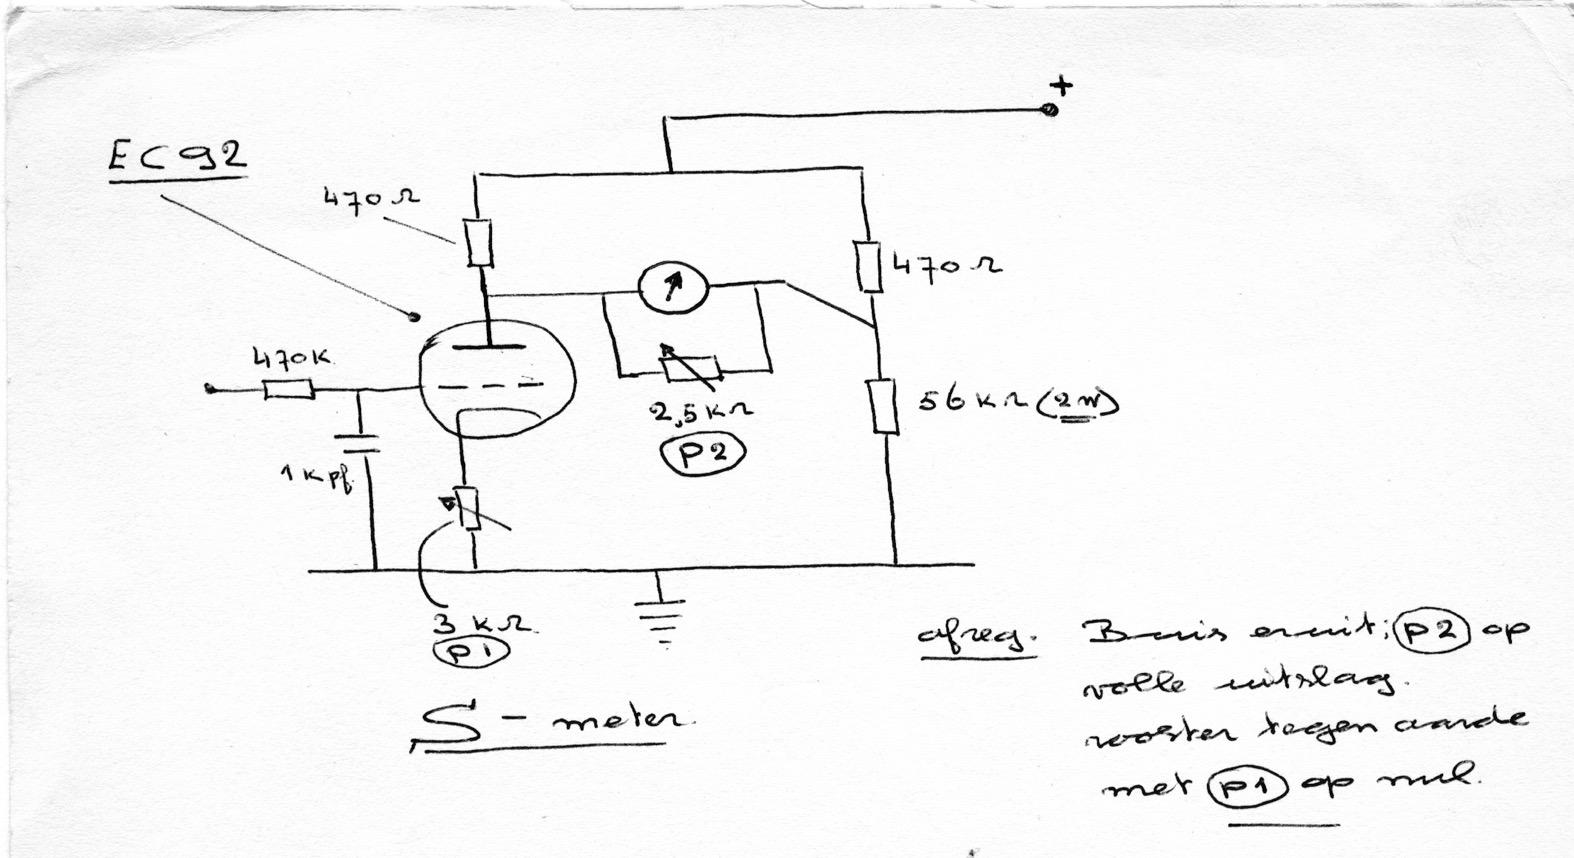 +
EC92
470Ω
470Ω
470K
56KΩ (2W)
2,5KΩ
P2
1Kpf
3KΩ
P1
S-meter.
afreg. Buis eruit; P2 op
volle uitslag.
rooster tegen aarde
met P1 op nul.